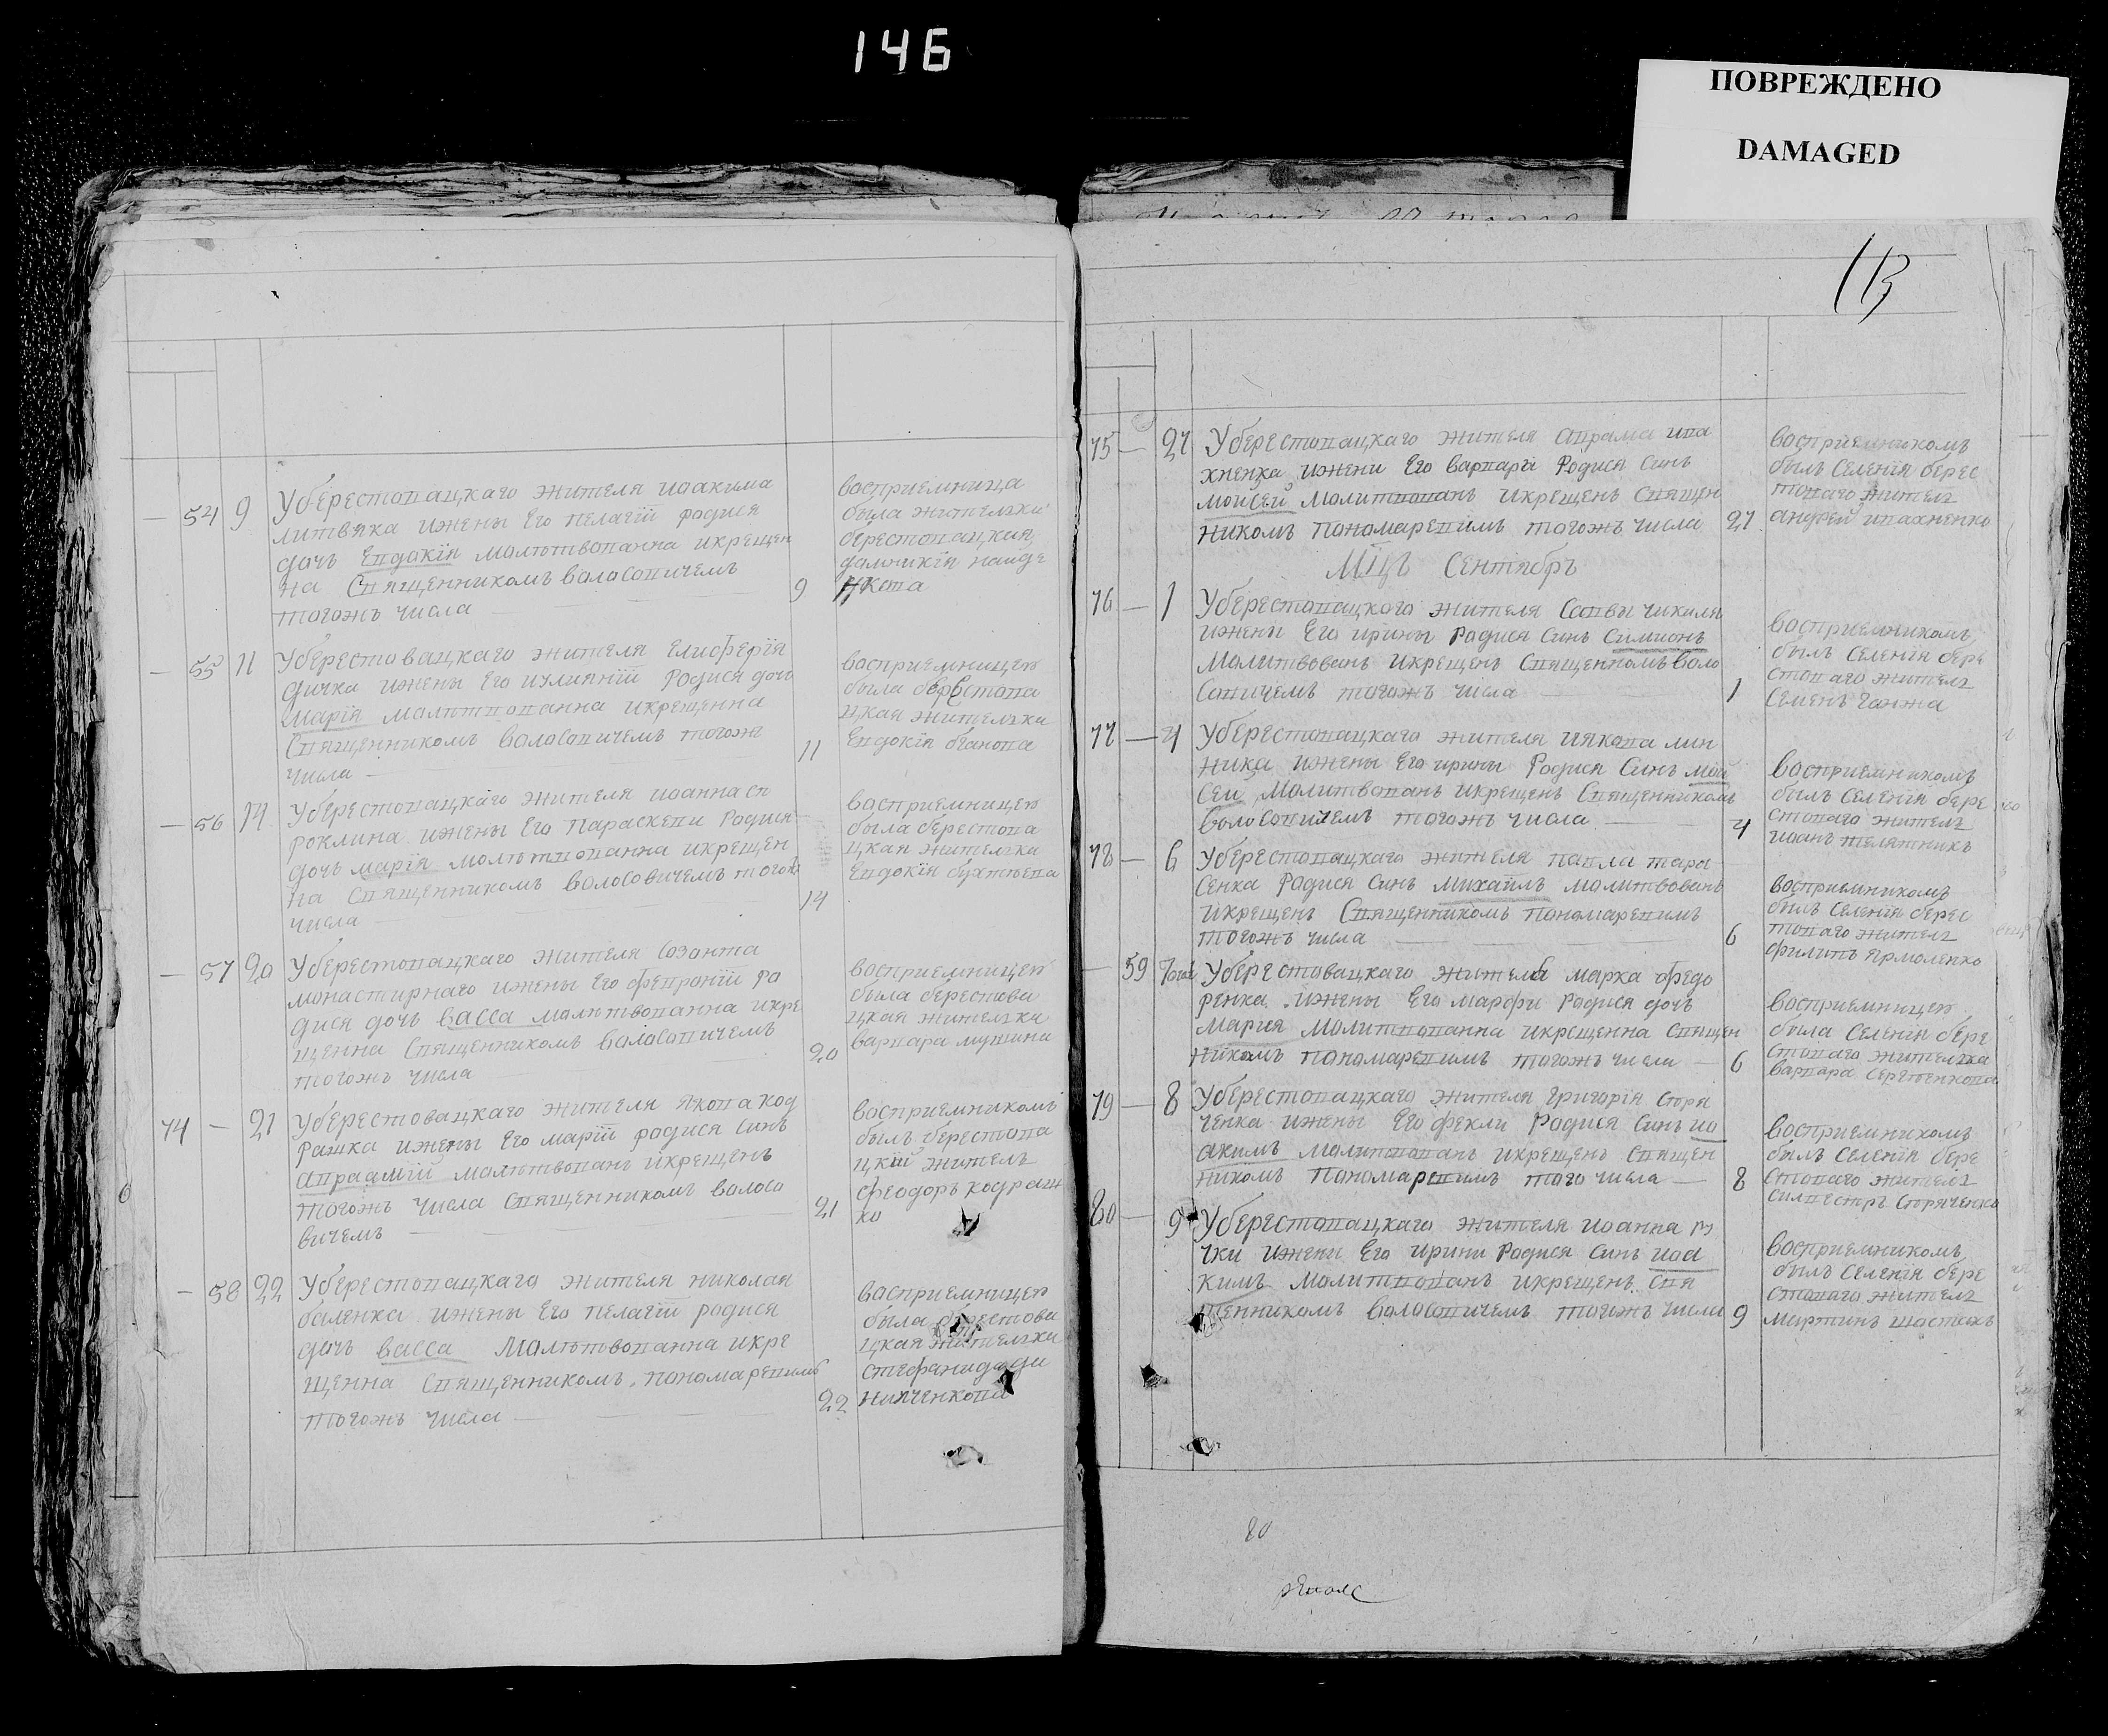 146
ПОВРЕЖДЕНО
DAMAGED
54 9
Уберестовацкаго жителя иоакима
литвяка ижены Его пелагіи родися
дочь Евдокія молитвованна икрещен
на Священникомъ волосовичемъ
тогожъ числа
9
восприемница
была жителька
берестовацкая
55 11
Уберестовацкаго жителя Елиоферія
дичка ижены Его иулияніи Родися дочь
Марія молитвованна икрещенна
Священникомъ Волосовичемъ тогожъ
числа
11
восприемницею
была берестова
цкая жителька
Евдокія
56 14
Уберестовацкаго жителя иоанна
ижены Его Параскеви Родися
дочь марія молитвованна икрещен
на Священникомъ Волосовичемъ тогожъ
числа
14
восприемницею
была берестова
цкая жителька
Евдокія
57 20
Уберестовацкаго жителя Созонта
монастирнаго ижены Его февроніи ро
дися дочь васса молитвованна икре
щенна Священникомъ Волосовичемъ
тогожъ числа
20
восприемницею
была берестова
цкая жителька
варвара
74 21
Уберестовацкаго жителя Якова код
рашка ижены Его маріи родися Синъ
авраамій молитвованъ икрещенъ
тогожъ числа Священникомъ волосо
вичемъ
21
восприемникомъ
былъ берестова
цкій житель
феодоръ кодраш
ко
58 22
Уберестовацкаго жителя николая
баленка ижены Его пелагіи родися
дочь васса Молитвованна икре
щенна Священникомъ пономаревимъ
тогожъ числа
22
восприемницею
была берестова
цкая жителька
стефанида
6
113
75 27
Уберестовацкаго жителя аврама ива
хненка ижени Его варвари Родися Синъ
моисей молитвованъ икрещенъ Священ
никомъ пономаревимъ тогожъ числа
27
восприемникомъ
былъ Селенія берес
товаго житель
андрей ивахненко
Мцъ Сентябръ
76 1
Уберестовацкого жителя Саввы чикиля
ижени Его ирины Родися Синъ Симионъ
Молитвованъ икрещенъ Священномъ Воло
Совичемъ тогожъ числа
1
восприемникомъ
былъ Селенія бере
стоваго житель
Семенъ Ганжа
77 4
Уберестовацкаго жителя иякова лин
ника ижены Его ирины Родися Синъ мои
сеи Молитвованъ икрещенъ Священникомъ
Волосовичемъ тогожъ числа
4
Восприемникомъ
былъ Селенія бере
стоваго житель
иоанъ телятникъ
78 6
Уберестовацкаго жителя павла тара
сенка Родися Синъ Михаилъ молитвованъ
икрещенъ Священникомъ пономаревимъ
тогожъ числа
6
восприемникомъ
былъ Селенія берес
товаго житель
филипъ Ярмоленко
59
Уберестовацкаго жителя марка федо
ренка ижены Его марфы родися дочь
Мария Молитвованна икрещенна Священ
никомъ пономаревимъ тогожъ числа
6
восприемницею
была Селенія бере
стоваго жителька
варвара
79 8
Уберестовацкаго жителя Григорія Сторо
ченка ижены Его феклы Родися Синъ ио
акимъ молитвованъ икрещенъ Священ
никомъ Пономаревимъ того числа
8
Восприемникомъ
былъ Селенія бере
стоваго житель
80 9
Уберестовацкаго жителя иоанна
ижени Его ирини Родися Синъ иоа
кимъ молитвованъ икрещенъ Свя
щенникомъ Волосовичемъ тогожъ числа
9
Восприемникомъ
былъ Селенія бере
стоваго житель
мартинъ
80